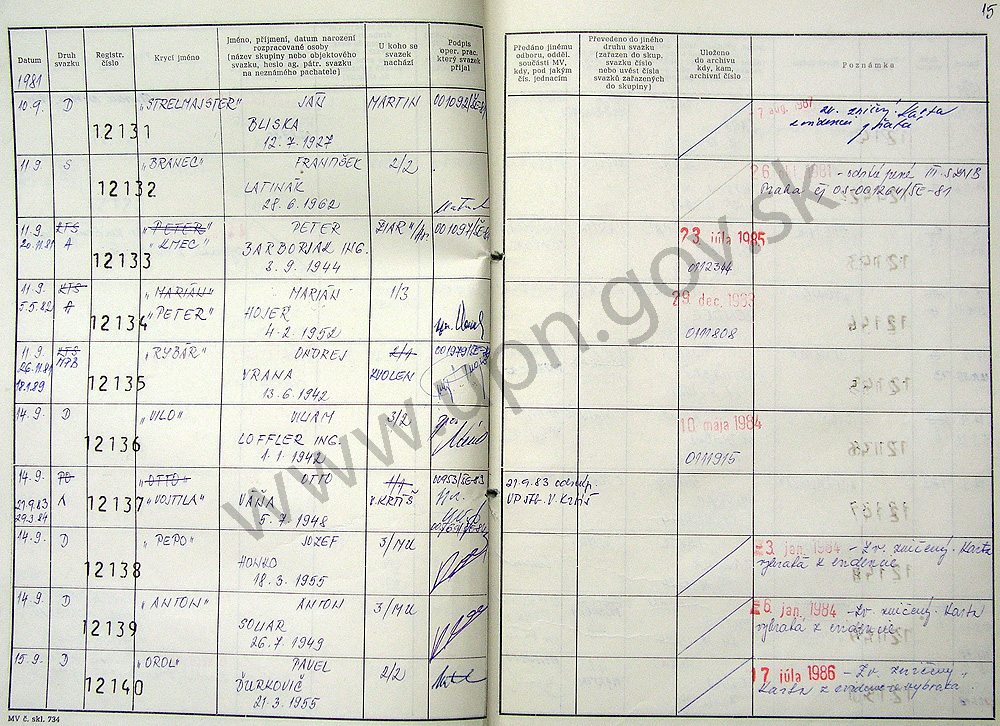 15
Datum
Druh svazku
Registr. číslo
Krycí jméno
Jméno, příjmení, datum narození rozpracované osoby (název skupiny nebo objektového svazku, heslo ag. pátr. svazku na neznámého pachatele)
U koho se svazek nachází
Podpis oper. prac. který svazek přijal
Předáno jinému odboru, odděl. součásti MV, kdy, pod jakým čís. jednacím
Převedeno do jiného druhu svazku (zařazen do skup. svazku číslo nebo uvést čísla svazků zařazených do skupiny)
Uloženo do archivu kdy, kam, archivní číslo
Poznámka
1981
10.9. D 12131 "STRELMAJSTER" JÁN MARTIN
BLISKA
12.7.1927
aug. 1987 zv. zničený karta
z evidencií
11.9. S 12132 "BRANEC" FRANTIŠEK 2/2
LATINÁK
28.6.1962
1981 - odstúpené III. S ZNB
Praha čj OS-001264/SE-81
11.9. KTS 12133 "PETER" PETER ŽIAR
20.11.81 A "KMEC" BARBORIAK ING.
8.9.1944
23 júla 1985
0112344
11.9. KTS 12134 "MARIÁN" MARIÁN 1/3
5.5.82 A "PETER" HOJER
4.2.1952
29 dec. 1983
0111808
11.9. KTS 12135 "RYBÁR" ONDREJ
26.11.81 MPB VRANA ZVOLEN
18.1.89 13.6.1942
14.9. D 12136 "VILO" VILIAM 3/2
LOFFLER ING.
1.1.1942
10 maja 1984
0111915
14.9. PO 12137 "OTTO" OTTO
27.9.83 A "VOJTILA" VÁNA V. KRTÍŠ
29.3.84 5.7.1948
27.9.83 odstúp.
V. Krtíš
14.9. D 12138 "PEPO" JOZEF 3/MU
HONKO
18.3.1955
3. jan. 1984 - Zv. zničený. Karta
vybratá z evidencie
14.9. D 12139 "ANTON" ANTON 3/MU
SOLIAR
26.7.1949
6 jan. 1984 - Zv. zničený. Karta
vybratá z evidencie
15.9. D 12140 "OROL" PAVEL 2/2
ĎURKOVIČ
21.3.1955
17 júla 1986 - Zv. zničený.
Karta z evidencie vybratá
MV č. skl. 734
www.upn.gov.sk